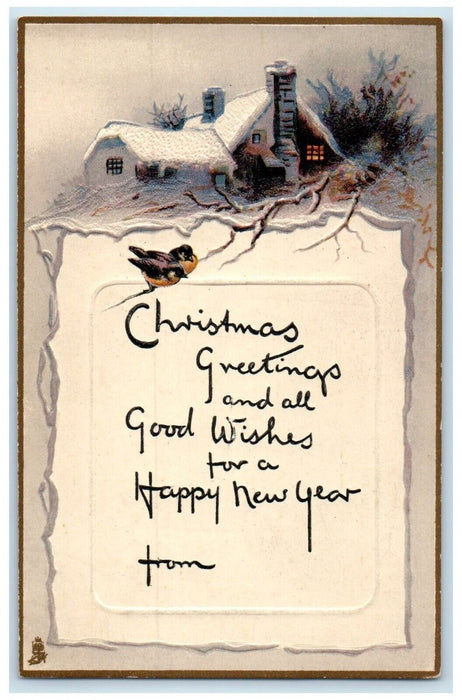 Christmas
Greetings
and all
Good Wishes
for a
Happy New Year
from